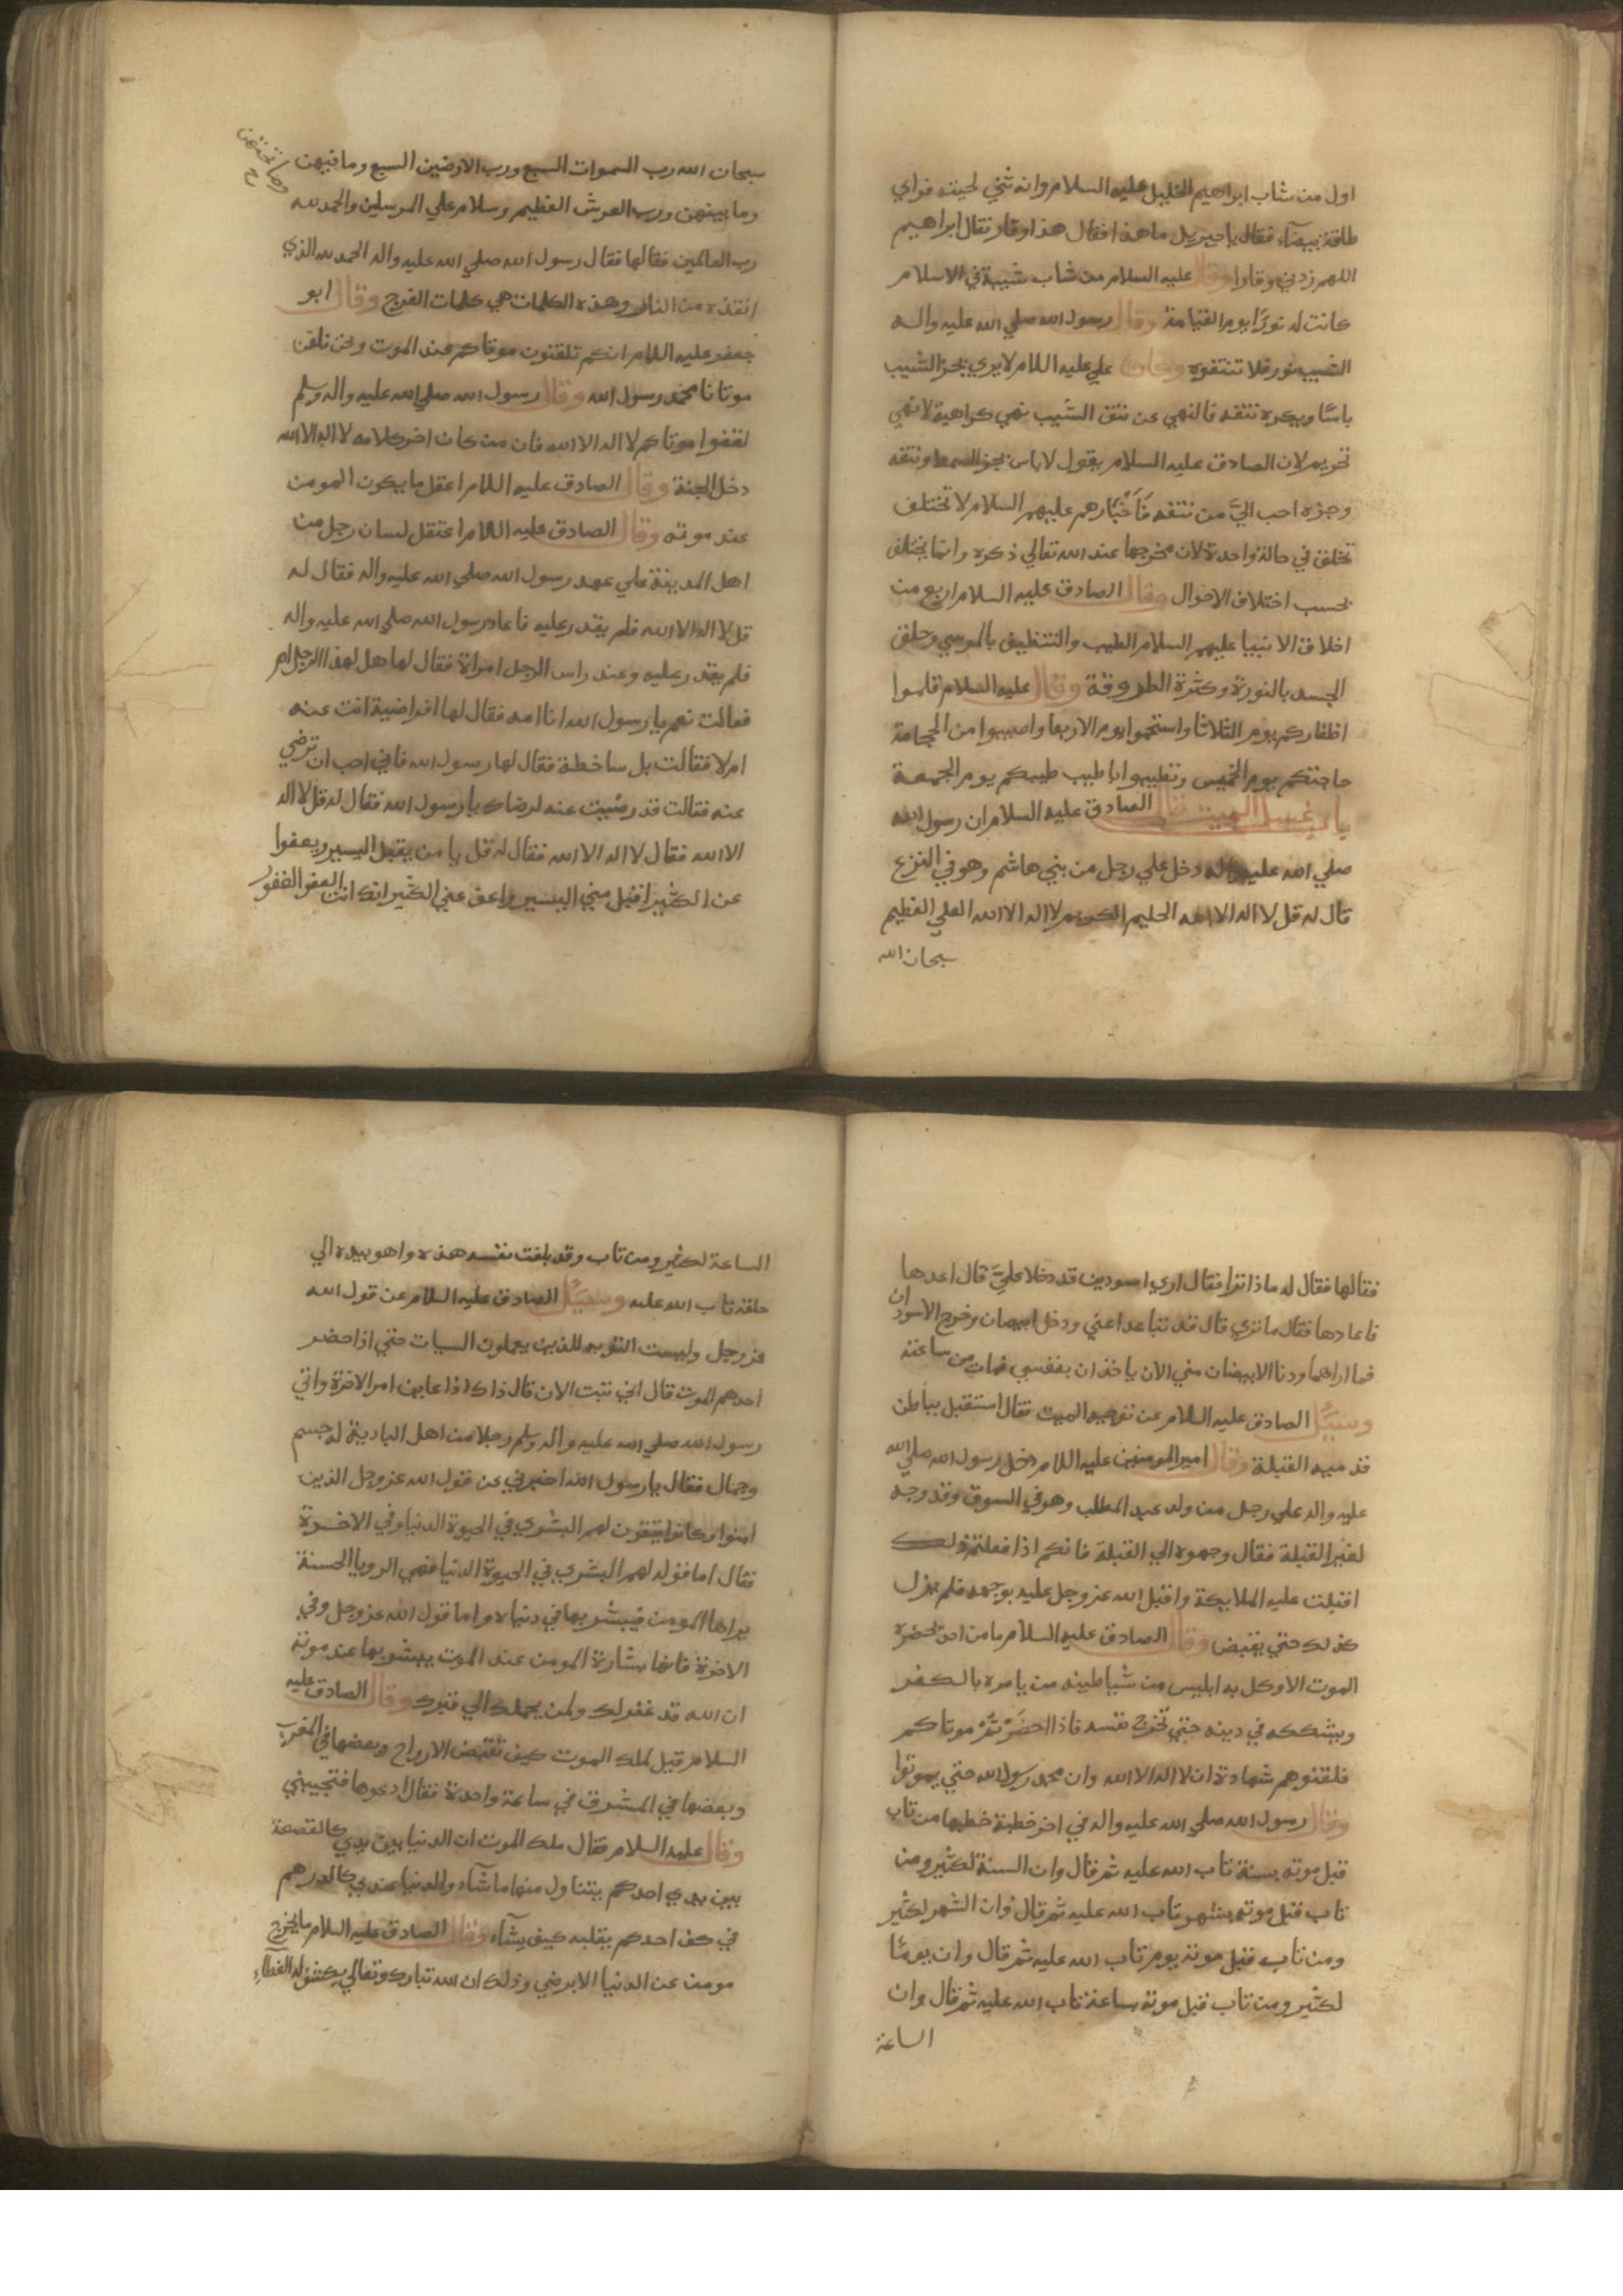 اول من شاب ابراهيم الخليل عليه السلام وانه ثني لحيته فراي
طاقة بيضآء فقال يا جبريل ما هذا فقال هذا وقار فقال ابراهيم
اللهم زدني وقارا وقال عليه السلام من شاب شيبة في الاسلام
كانت له نورًا يوم القيامة وقال رسول الله صلي الله عليه واله
الشيب نور فلا تنتفوه وكان علي عليه السلام لا يري بجز الشيب
باسًا ويكره نتفه فالنهي عن نتف الشيب نهي كراهية لا نهي
تحريم لان الصادق عليه السلام يقول لا باس بجز الشمط ونتفه
وجزه احب اليَّ من نتفه فَاَخْبَارهم عليهم السلام لا تختلف
تختلف في حالة واحدة لان مخرجها عند الله تعالي ذكره وانما يختلف
بحسب اختلاف الاحوال وقال الصادق عليه السلام اربع من
اخلاق الانبيا عليهم السلام الطيب والتنظيف بالموسي وحلق
الجسد بالنورة وكثرة الطروقة وقال عليه السلام قلموا
اظفاركم يوم الثلاثا واستحموا يوم الاربعا واصيبوا من الحجامة
حاجتكم يوم الخميس وتطيبوا باطيب طيبكم يوم الجمعة
باب غسل الميت قال الصادق عليه السلام ان رسول الله
صلي الله عليه واله دخل علي رجل من بني هاشم وهو في النزع
قال له قل لا اله الا الله الحليم الكريم لا اله الا الله العلي العظيم
سبحان الله
سبحان الله رب السموات السبع ورب الارضين السبع وما فيهن
وما تحتهن
وما بينهن ورب العرش العظيم وسلام علي المرسلين والحمد لله
رب العالمين فقالها فقال رسول الله صلي الله عليه واله الحمد لله الذي
انقذه من النار وهذه الكلمات هي كلمات الفرج وقال ابو
جعفر عليه السلام انكم تلقنون موتاكم عند الموت ونحن نلقن
موتانا محمد رسول الله وقال رسول الله صلي الله عليه واله وسلم
لقنوا موتاكم لا اله الا الله فان من كان اخر كلامه لا اله الا الله
دخل الجنة وقال الصادق عليه السلام اعقل ما يكون المومن
عند موته وقال الصادق عليه السلام اعتقل لسان رجل من
اهل المدينة علي عهد رسول الله صلي الله عليه واله فقال له
قل لا اله الا الله فلم يقدر عليه فاعاد رسول الله صلي الله عليه واله
فلم يقدر عليه وعند راس الرجل امراة فقال لها هل لهذا الرجل ام
فقالت نعم يا رسول الله انا امه فقال لها افراضية انت عنه
ام لا فقالت بل ساخطة فقال لها رسول الله فاني احب ان ترضي
عنه فقالت قد رضيت عنه لرضاك يا رسول الله فقال له قل لا اله
الا الله فقال لا اله الا الله فقال له قل يا من يقبل اليسير ويعفوا
عن الكثير اقبل مني اليسير واعف عني الكثير انك انت العفو الغفور
فقالها فقال له ماذا ترا فقال اري اسودين قد دخلا عليَّ قال اعدها
فاعادها فقال ما تري قال قد تباعدا عني ودخل ابيضان وخرج الاسودان
فما اراهما ودنا الابيضان مني الان ياخذان بنفسي فمات من ساعته
وسُئِل الصادق عليه السلام عن توجيه الميت فقال استقبل بباطن
قدميه القبلة وقال امير المومنين عليه السلام دخل رسول الله صلي الله
عليه واله علي رجل من ولد عبد المطلب وهو في السوق وقد وجه
لغير القبلة فقال وجهوه الي القبلة فانكم اذا فعلتم ذلك
اقبلت عليه الملايكة واقبل الله عز وجل عليه بوجهه فلم يزل
كذلك حتي يقبض وقال الصادق عليه السلام ما من احد يحضره
الموت الا وكل به ابليس من شياطينه من يامره بالكفر
ويشككه في دينه حتي تخرج نفسه فاذا حضَرْتمْ موتاكم
فلقنوهم شهادة ان لا اله الا الله وان محمد رسول الله حتي يموتوا
وقال رسول الله صلي الله عليه واله في اخر خطبة خطبها من تاب
قبل موته بسنة تاب الله عليه ثم قال وان السنة لكثير ومن
تاب قبل موته بشهر تاب الله عليه ثم قال وان الشهر لكثير
ومن تاب قبل موته بيوم تاب الله عليه ثم قال وان يومًا
لكثير ومن تاب قبل موته بساعة تاب الله عليه ثم قال وان
الساعة
الساعة لكثير ومن تاب وقد بلغت نفسه هذه واهو بيده الي
حلقه تاب الله عليه وسُئِل الصادق عليه السلام عن قول الله
عز وجل وليست التوبه للذين يعملون السيات حتي اذا حضر
احدهم الموت قال اني تبت الان قال ذاك اذا عاين امر الاخرة واتي
رسول الله صلي الله عليه واله وسلم رجلا من اهل البادية له جسم
وجمال فقال يا رسول الله اخبرني عن قول الله عز وجل الذين
امنوا وكانوا يتقون لهم البشري في الحيوة الدنيا وفي الاخرة
فقال اما قوله لهم البشري في الحيوة الدنيا فهي الرويا الحسنة
يراها المومن فيبشر بها في دنياه واما قول الله عز وجل وفي
الاخرة فانها بشارة المومن عند الموت يبشر بها عند موته
ان الله قد غفر لك ولمن يحملك الي قبرك وقال الصادق عليه
السلام قيل لملك الموت كيف تقبض الارواح وبعضها في المغرب
وبعضها في المشرق في ساعة واحدة فقال ادعوها فتجيبني
وقال عليه السلام فقال ملك الموت ان الدنيا بين يدي كالقصعة
بين يدي احدكم يتناول منها ما شآء والدنيا عندي كالدرهم
في كف احدكم يقلبه كيف يشآء وقال الصادق عليه السلام ما يخرج
مومن عن الدنيا الا برضي وذلك ان الله تبارك وتعالي يكشف له الغطآء